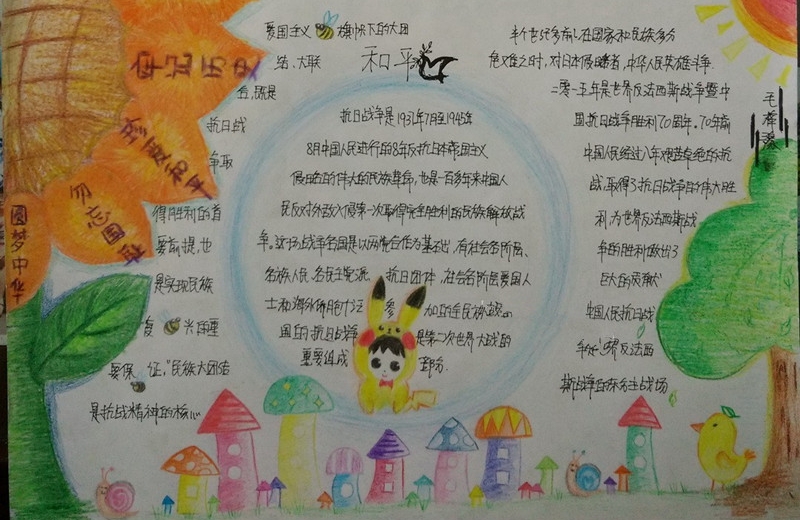 牢记历史
珍爱和平
勿忘国耻
圆梦中华
爱国主义旗帜下的大团
结、大联
合,既是
抗日战
争取
得胜利的首
要前提,也
是实现民族
复兴的重
要保证,"民族大团结
是抗战精神的核心
和平
抗日战争是1937年7月至1945年
8月中国人民进行的8年反抗日本帝国主义
民反对外敌入侵第一次取得完全胜利的民族解放战
争。这场战争各国是以两党合作为基础,有社会各阶层、
名族人民、各民主党派、抗日团体,社会各阶层爱国人
士和海外侨胞
参加的全民族
国的抗日战争是第二次世界大战的
重要组成部分.
半个世纪多前,在国家和民族多分
危艰难之时,对日本侵略者,中华人民英雄斗争.
二零一五年是世界反法西斯战争暨中
国抗日战争胜利70周年.70年前
中国人民经过八年艰苦卓绝的抗
战,取得了抗日战争的伟大胜
利,为世界反法西斯战
争的胜利做出了
巨大的贡献
中国人民抗日战
争是世界反法西
斯战争的东方主战场
毛泽东